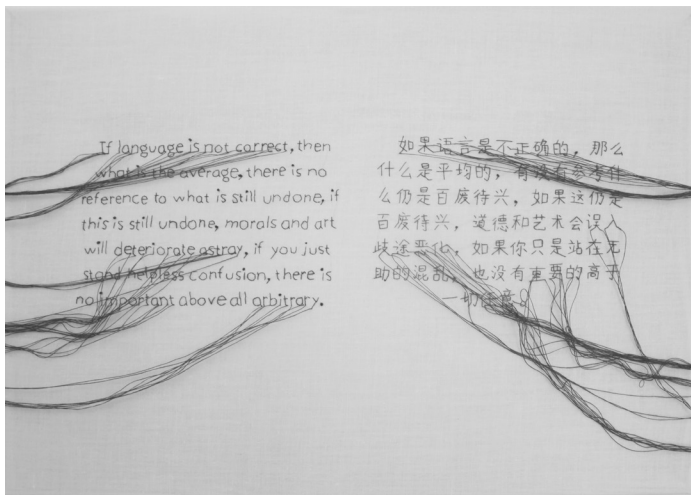 If language is not correct, then
what is the average, there is no
reference to what is still undone, if
this is still undone, morals and art
will deteriorate astray, if you just
stand helpless confusion, there is
no important above all arbitrary.
如果语言是不正确的，那么
什么是平均的，有没有参考什
么仍是百废待兴，如果这仍是
百废待兴，道德和艺术会误入
歧途恶化，如果你只是站在无
助的混乱，也没有重要的高于
一切任意。